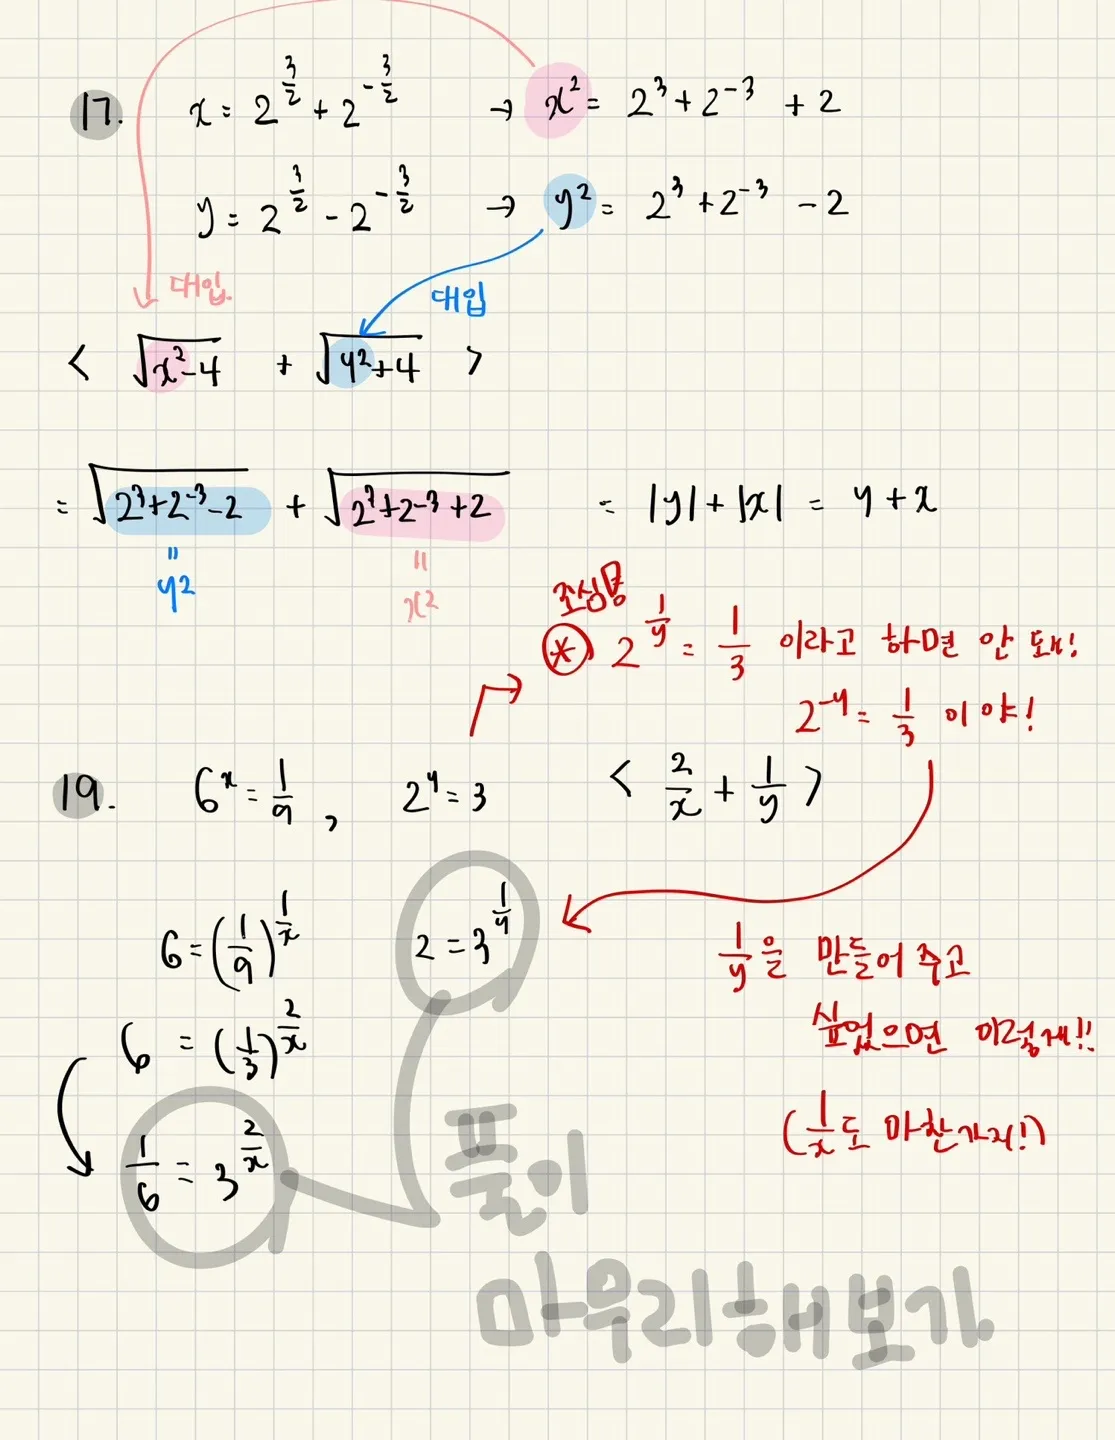 17. x = 2^{3/2} + 2^{-3/2} → x² = 2³ + 2⁻³ + 2
y = 2^{3/2} - 2^{-3/2} → y² = 2³ + 2⁻³ - 2
대입.
대입
< √(x²-4) + √(y²+4) >
= √(2³+2⁻³-2) + √(2³+2⁻³+2) = |y| + |x| = y + x
= y²
= x²
조심명
* 2^{1/y} = 1/3 이라고 하면 안 돼!
2^{-y} = 1/3 이야!
19. 6^x = 1/9 , 2^y = 3 < 2/x + 1/y >
6 = (1/9)^{1/x} 2 = 3^{1/y}
1/y을 만들어 주고
싶었으면 이렇게!!
6 = (1/3)^{2/x}
(1/x도 마찬가지!)
1/6 = 3^{2/x}
풀이
마무리해보기